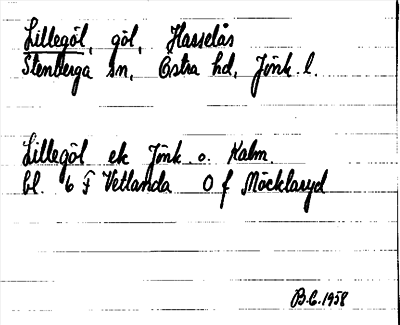 Lillegöl, göl, Hasselås
Stenberga sn, Östra hd, Jönk. l.
Lillegöl ek Jönk. o. Kalm.
bl. 6 F Vetlanda O f Möcklaryd
B.E. 1958